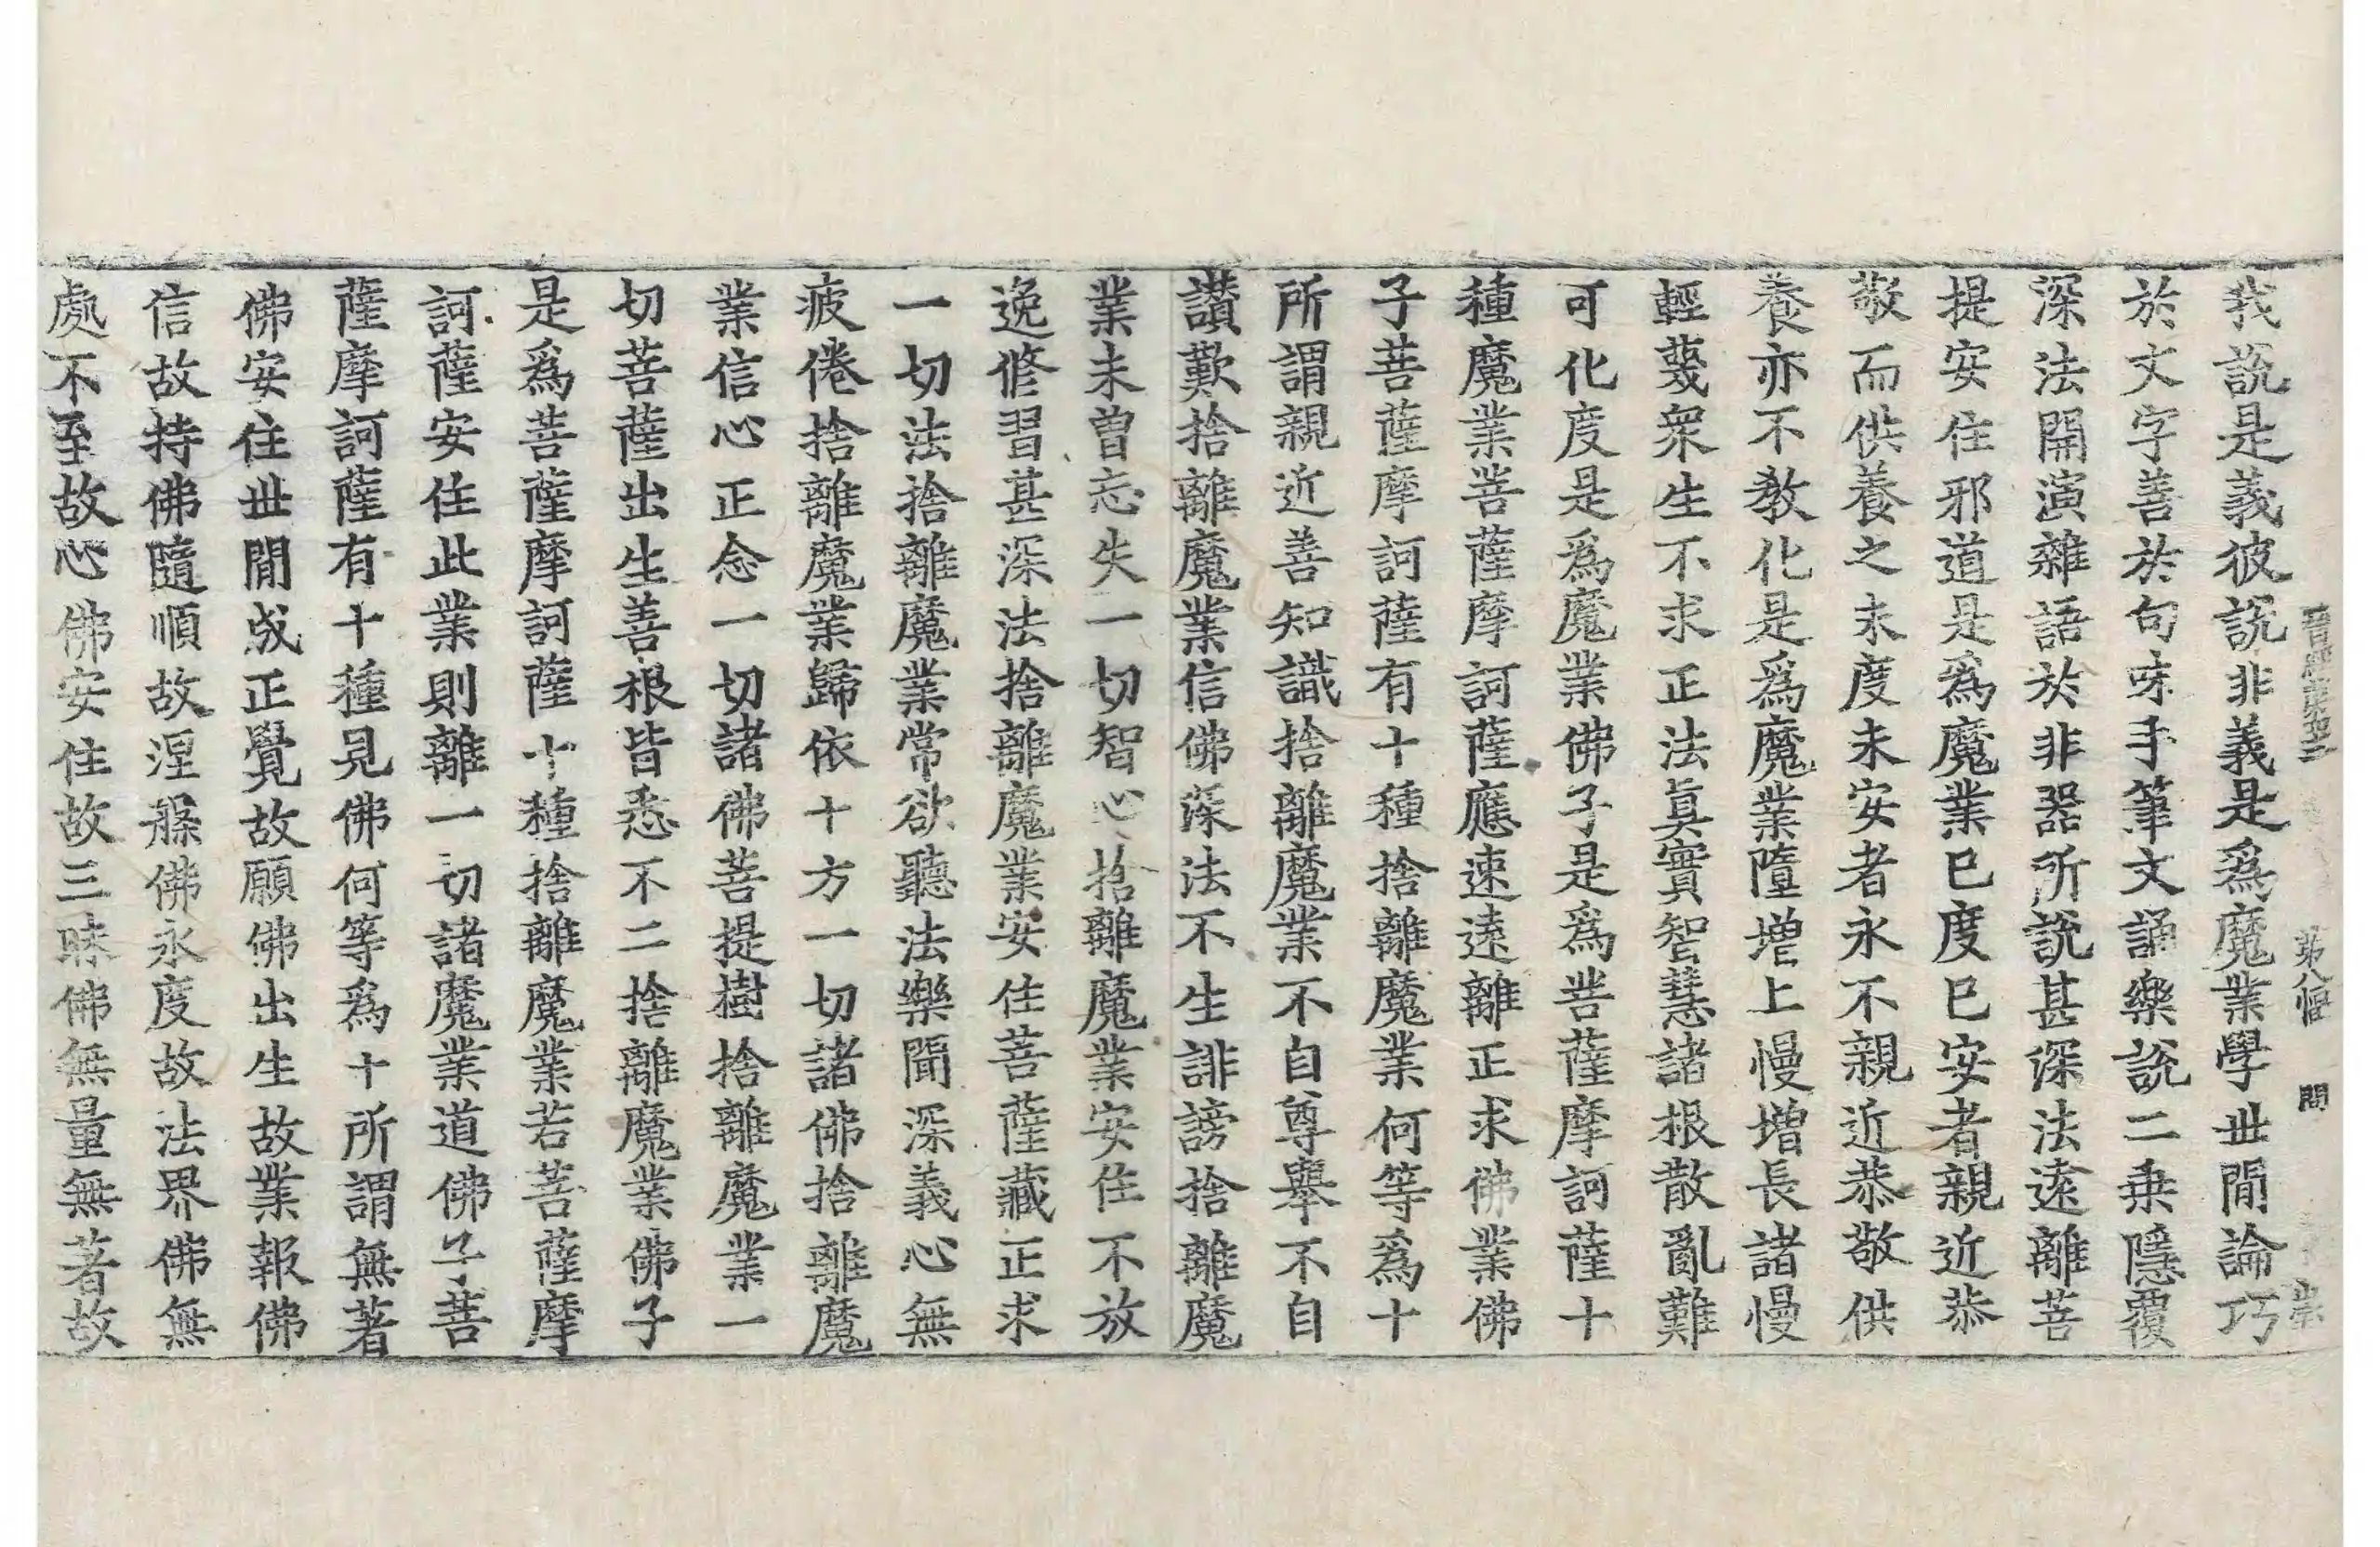 晉經第四十二 第八幅 問
我說是義彼說非義是爲魔業學丗閒論巧
於文字善於句味手筆文誦樂說二乗隱覆
深法開演雜語於非器所說甚深法遠離菩
提安住邪道是爲魔業已度已安者親近恭
敬而供養之未度未安者永不親近恭敬供
養亦不教化是爲魔業墮增上慢增長諸慢
輕蔑衆生不求正法眞實智慧諸根散亂難
可化度是爲魔業佛子是爲菩薩摩訶薩十
種魔業菩薩摩訶薩應速遠離正求佛業佛
子菩薩摩訶薩有十種捨離魔業何等爲十
所謂親近善知識捨離魔業不自尊舉不自
讃歎捨離魔業信佛深法不生誹謗捨離魔
業未曽忘失一切智心捨離魔業安住不放
逸修習甚深法捨離魔業安住菩薩藏正求
一切法捨離魔業常欲聽法樂聞深義心無
疲倦捨離魔業歸依十方一切諸佛捨離魔
業信心正念一切諸佛菩提樹捨離魔業一
切菩薩出生善根皆悉不二捨離魔業佛子
是爲菩薩摩訶薩十種捨離魔業若菩薩摩
訶薩安住此業則離一切諸魔業道佛子菩
薩摩訶薩有十種見佛何等爲十所謂無著
佛安住丗閒成正覺故願佛出生故業報佛
信故持佛隨順故涅槃佛永度故法界佛無
處不至故心佛安住故三昧佛無量無著故